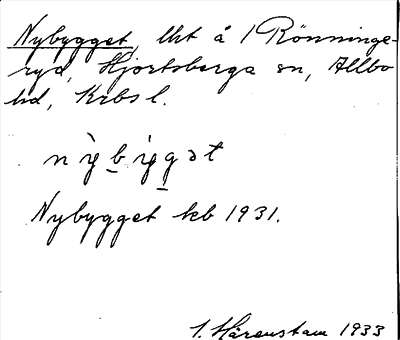 Nybygget, lht å 1 Rönninge-
ryd, Hjortsberga sn, Allbo
hd, Krbs l.
nỳbỳgət
Nybygget kb 1931.
I. Hårenstam 1933